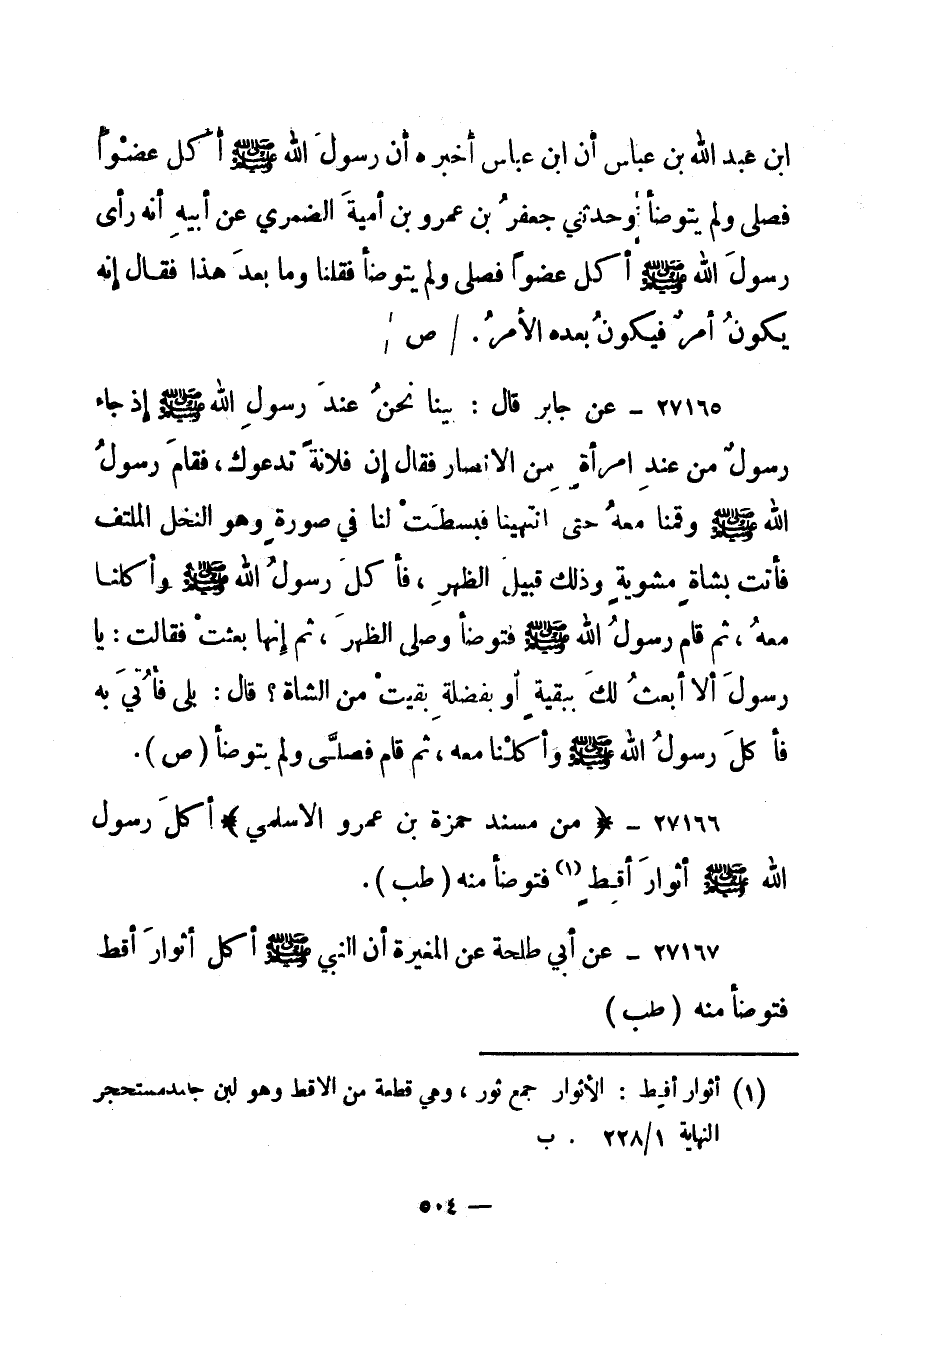 ابن عبد الله بن عباس أن ابن عباس أخبره أن رسولَ الله ﷺ أكل عضْواً
فصلى ولم يتوضأ وحدثني جعفرُ بن عمرو بن أميةَ الضمري عن أبيهِ أنه رأى
رسولَ الله ﷺ أكل عضواً فصلى ولم يتوضأ فقلنا وما بعدَ هذا فقال إنه
يكونُ أمرٌ فيكونُ بعده الأمرُ . / ص /
٢٧١٦٥ ـ عن جابر قال : بينا نحنُ عندَ رسولِ الله ﷺ إذ جاء
رسولٌ من عندِ امرأةٍ من الانصار فقال إن فلانةً تدعوك، فقامَ رسولُ
الله ﷺ وقمنا معهُ حتى انتهينا فبسطَتْ لنا في صورةٍ وهو النخل الملتف
فأتت بشاةٍ مشويةٍ وذلك قبيلَ الظهرِ ، فأكلَ رسولُ الله ﷺ وأكلنا
معهُ ، ثم قام رسولُ الله ﷺ فتوضأ وصلى الظهرَ ، ثم إنها بعثتْ فقالت : يا
رسولَ ألا أبعثُ لكَ ببقيةٍ أو بفضلةِ بقيتْ من الشاة ؟ قال : بلى فأُتيَ به
فأكلَ رسولُ الله ﷺ وأكلْنا معه ، ثم قام فصلَّى ولم يتوضأ ( ص ) .
٢٧١٦٦ ـ ﴿ من مسند حمزة بن عمرو الاسلمي ﴾ أكلَ رسول
الله ﷺ أثوارَ أقطٍ (١) فتوضأ منه ( طب ) .
٢٧١٦٧ ـ عن أبي طلحة عن المغيرة أن النبي ﷺ أكل أثوارَ أقط
فتوضأ منه ( طب )
(١) أثوار أقط : الأثوار جمع ثور ، وهي قطعة من الاقط وهو لبن جامد مستحجر
النهاية ٢٢٨/١ . ب
ـ ٥٠٤